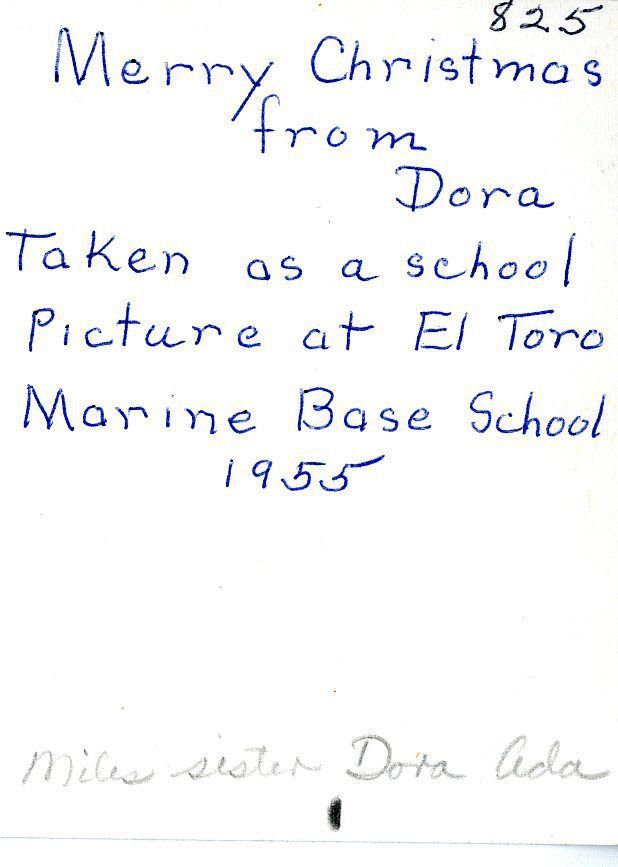 825
Merry Christmas
from
Dora
Taken as a school
Picture at El Toro
Marine Base School
1955
Miles sister Dora Ada